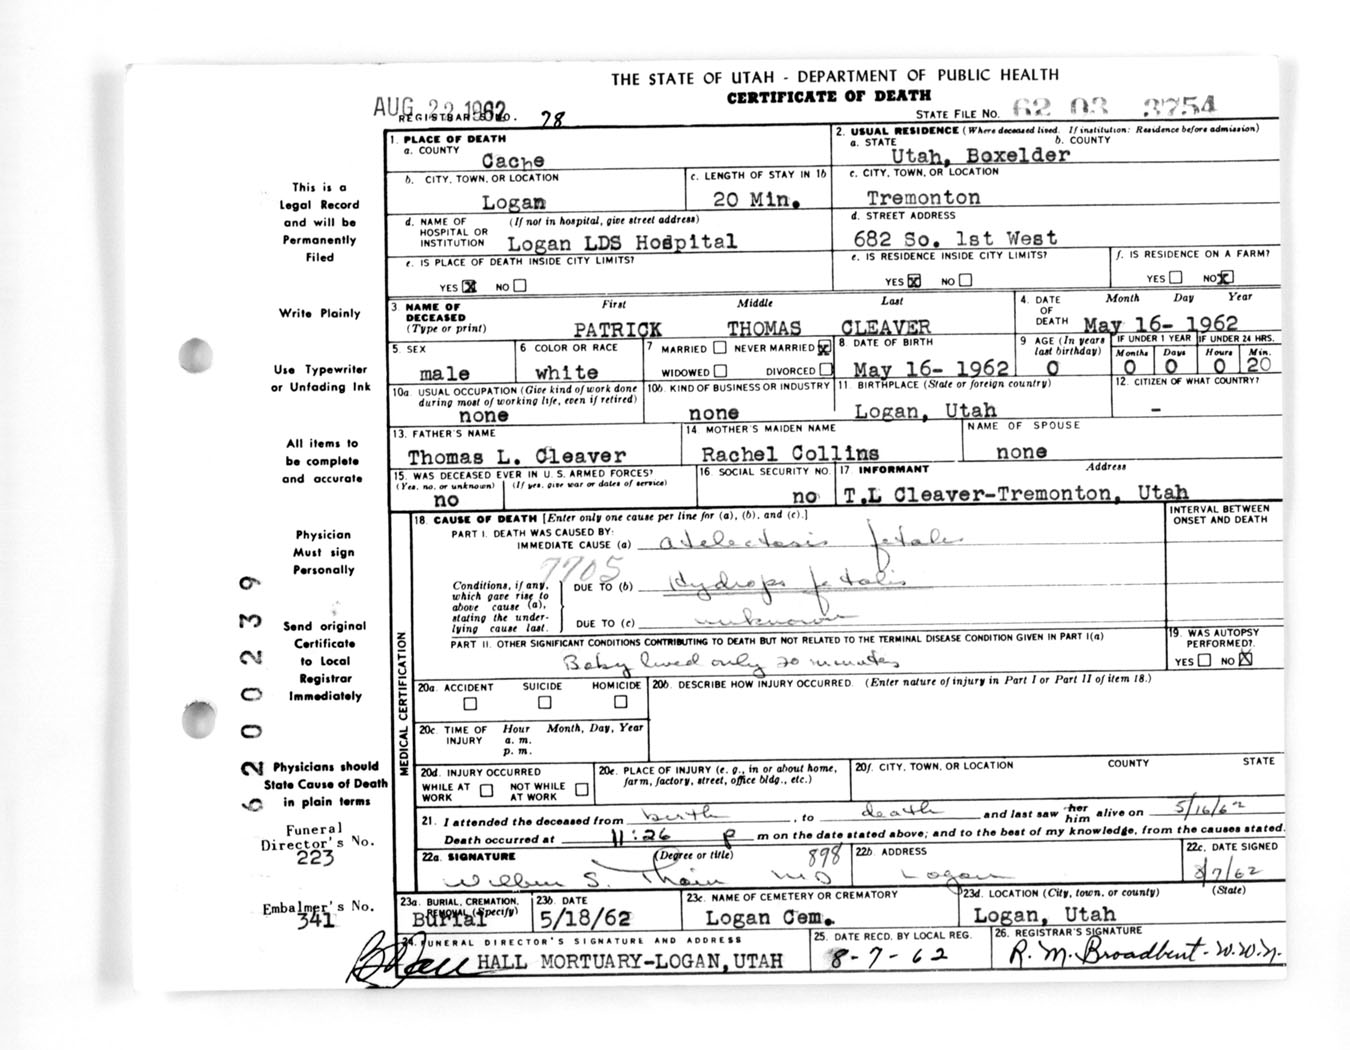 THE STATE OF UTAH - DEPARTMENT OF PUBLIC HEALTH
CERTIFICATE OF DEATH
AUG 22 1962
REGISTRAR'S NO. 78
STATE FILE NO. 62 03 3754
1. PLACE OF DEATH
a. COUNTY
Cache
2. USUAL RESIDENCE (Where deceased lived. If institution: Residence before admission)
a. STATE b. COUNTY
Utah, Boxelder
b. CITY, TOWN, OR LOCATION
Logan
c. LENGTH OF STAY IN 1b
20 Min.
c. CITY, TOWN, OR LOCATION
Tremonton
d. NAME OF HOSPITAL OR INSTITUTION (If not in hospital, give street address)
Logan LDS Hospital
d. STREET ADDRESS
682 So. 1st West
e. IS PLACE OF DEATH INSIDE CITY LIMITS?
YES X NO
e. IS RESIDENCE INSIDE CITY LIMITS?
YES X NO
f. IS RESIDENCE ON A FARM?
YES NO X
3. NAME OF DECEASED (Type or print)
First Middle Last
PATRICK THOMAS CLEAVER
4. DATE OF DEATH
Month Day Year
May 16- 1962
5. SEX
male
6 COLOR OR RACE
white
7 MARRIED NEVER MARRIED X
WIDOWED DIVORCED
8 DATE OF BIRTH
May 16- 1962
9 AGE (In years last birthday)
0
IF UNDER 1 YEAR
Months Days
0 0
IF UNDER 24 HRS.
Hours Min.
0 20
10a. USUAL OCCUPATION (Give kind of work done during most of working life, even if retired)
none
10b. KIND OF BUSINESS OR INDUSTRY
none
11. BIRTHPLACE (State or foreign country)
Logan, Utah
12. CITIZEN OF WHAT COUNTRY?
-
13. FATHER'S NAME
Thomas L. Cleaver
14 MOTHER'S MAIDEN NAME
Rachel Collins
NAME OF SPOUSE
none
15. WAS DECEASED EVER IN U. S. ARMED FORCES?
(Yes, no, or unknown) (If yes, give war or dates of service)
no
16 SOCIAL SECURITY NO.
no
17 INFORMANT Address
T.L Cleaver-Tremonton, Utah
MEDICAL CERTIFICATION
18. CAUSE OF DEATH [Enter only one cause per line for (a), (b), and (c).]
INTERVAL BETWEEN ONSET AND DEATH
PART I. DEATH WAS CAUSED BY:
IMMEDIATE CAUSE (a) atelectasis fetalis
7705
Conditions, if any, which gave rise to above cause (a), stating the underlying cause last.
DUE TO (b) Hydrops fetalis
DUE TO (c) unknown
PART II. OTHER SIGNIFICANT CONDITIONS CONTRIBUTING TO DEATH BUT NOT RELATED TO THE TERMINAL DISEASE CONDITION GIVEN IN PART I(a)
Baby lived only 20 minutes
19. WAS AUTOPSY PERFORMED?
YES NO X
20a. ACCIDENT SUICIDE HOMICIDE
20b. DESCRIBE HOW INJURY OCCURRED. (Enter nature of injury in Part I or Part II of item 18.)
20c. TIME OF INJURY Hour Month, Day, Year
a. m.
p. m.
20d. INJURY OCCURRED
WHILE AT WORK NOT WHILE AT WORK
20e. PLACE OF INJURY (e. g., in or about home, farm, factory, street, office bldg., etc.)
20f. CITY, TOWN, OR LOCATION COUNTY STATE
21. I attended the deceased from birth, to death and last saw her him alive on 5/16/62
Death occurred at 11:26 P m on the date stated above; and to the best of my knowledge, from the causes stated.
22a. SIGNATURE (Degree or title) 898
Wilbur S. Thain MD
22b. ADDRESS
Logan
22c. DATE SIGNED
8/7/62
23a. BURIAL, CREMATION, REMOVAL (Specify)
Burial
23b. DATE
5/18/62
23c. NAME OF CEMETERY OR CREMATORY
Logan Cem.
23d. LOCATION (City, town, or county) (State)
Logan, Utah
24. FUNERAL DIRECTOR'S SIGNATURE AND ADDRESS
HALL MORTUARY-LOGAN, UTAH
25. DATE RECD. BY LOCAL REG.
8-7-62
26. REGISTRAR'S SIGNATURE
R. M. Broadbent - W.W.N.
This is a
Legal Record
and will be
Permanently
Filed
Write Plainly
Use Typewriter
or Unfading Ink
All items to
be complete
and accurate
Physician
Must sign
Personally
Send original
Certificate
to Local
Registrar
Immediately
Physicians should
State Cause of Death
in plain terms
Funeral
Director's No.
223
Embalmer's No.
341
62000239